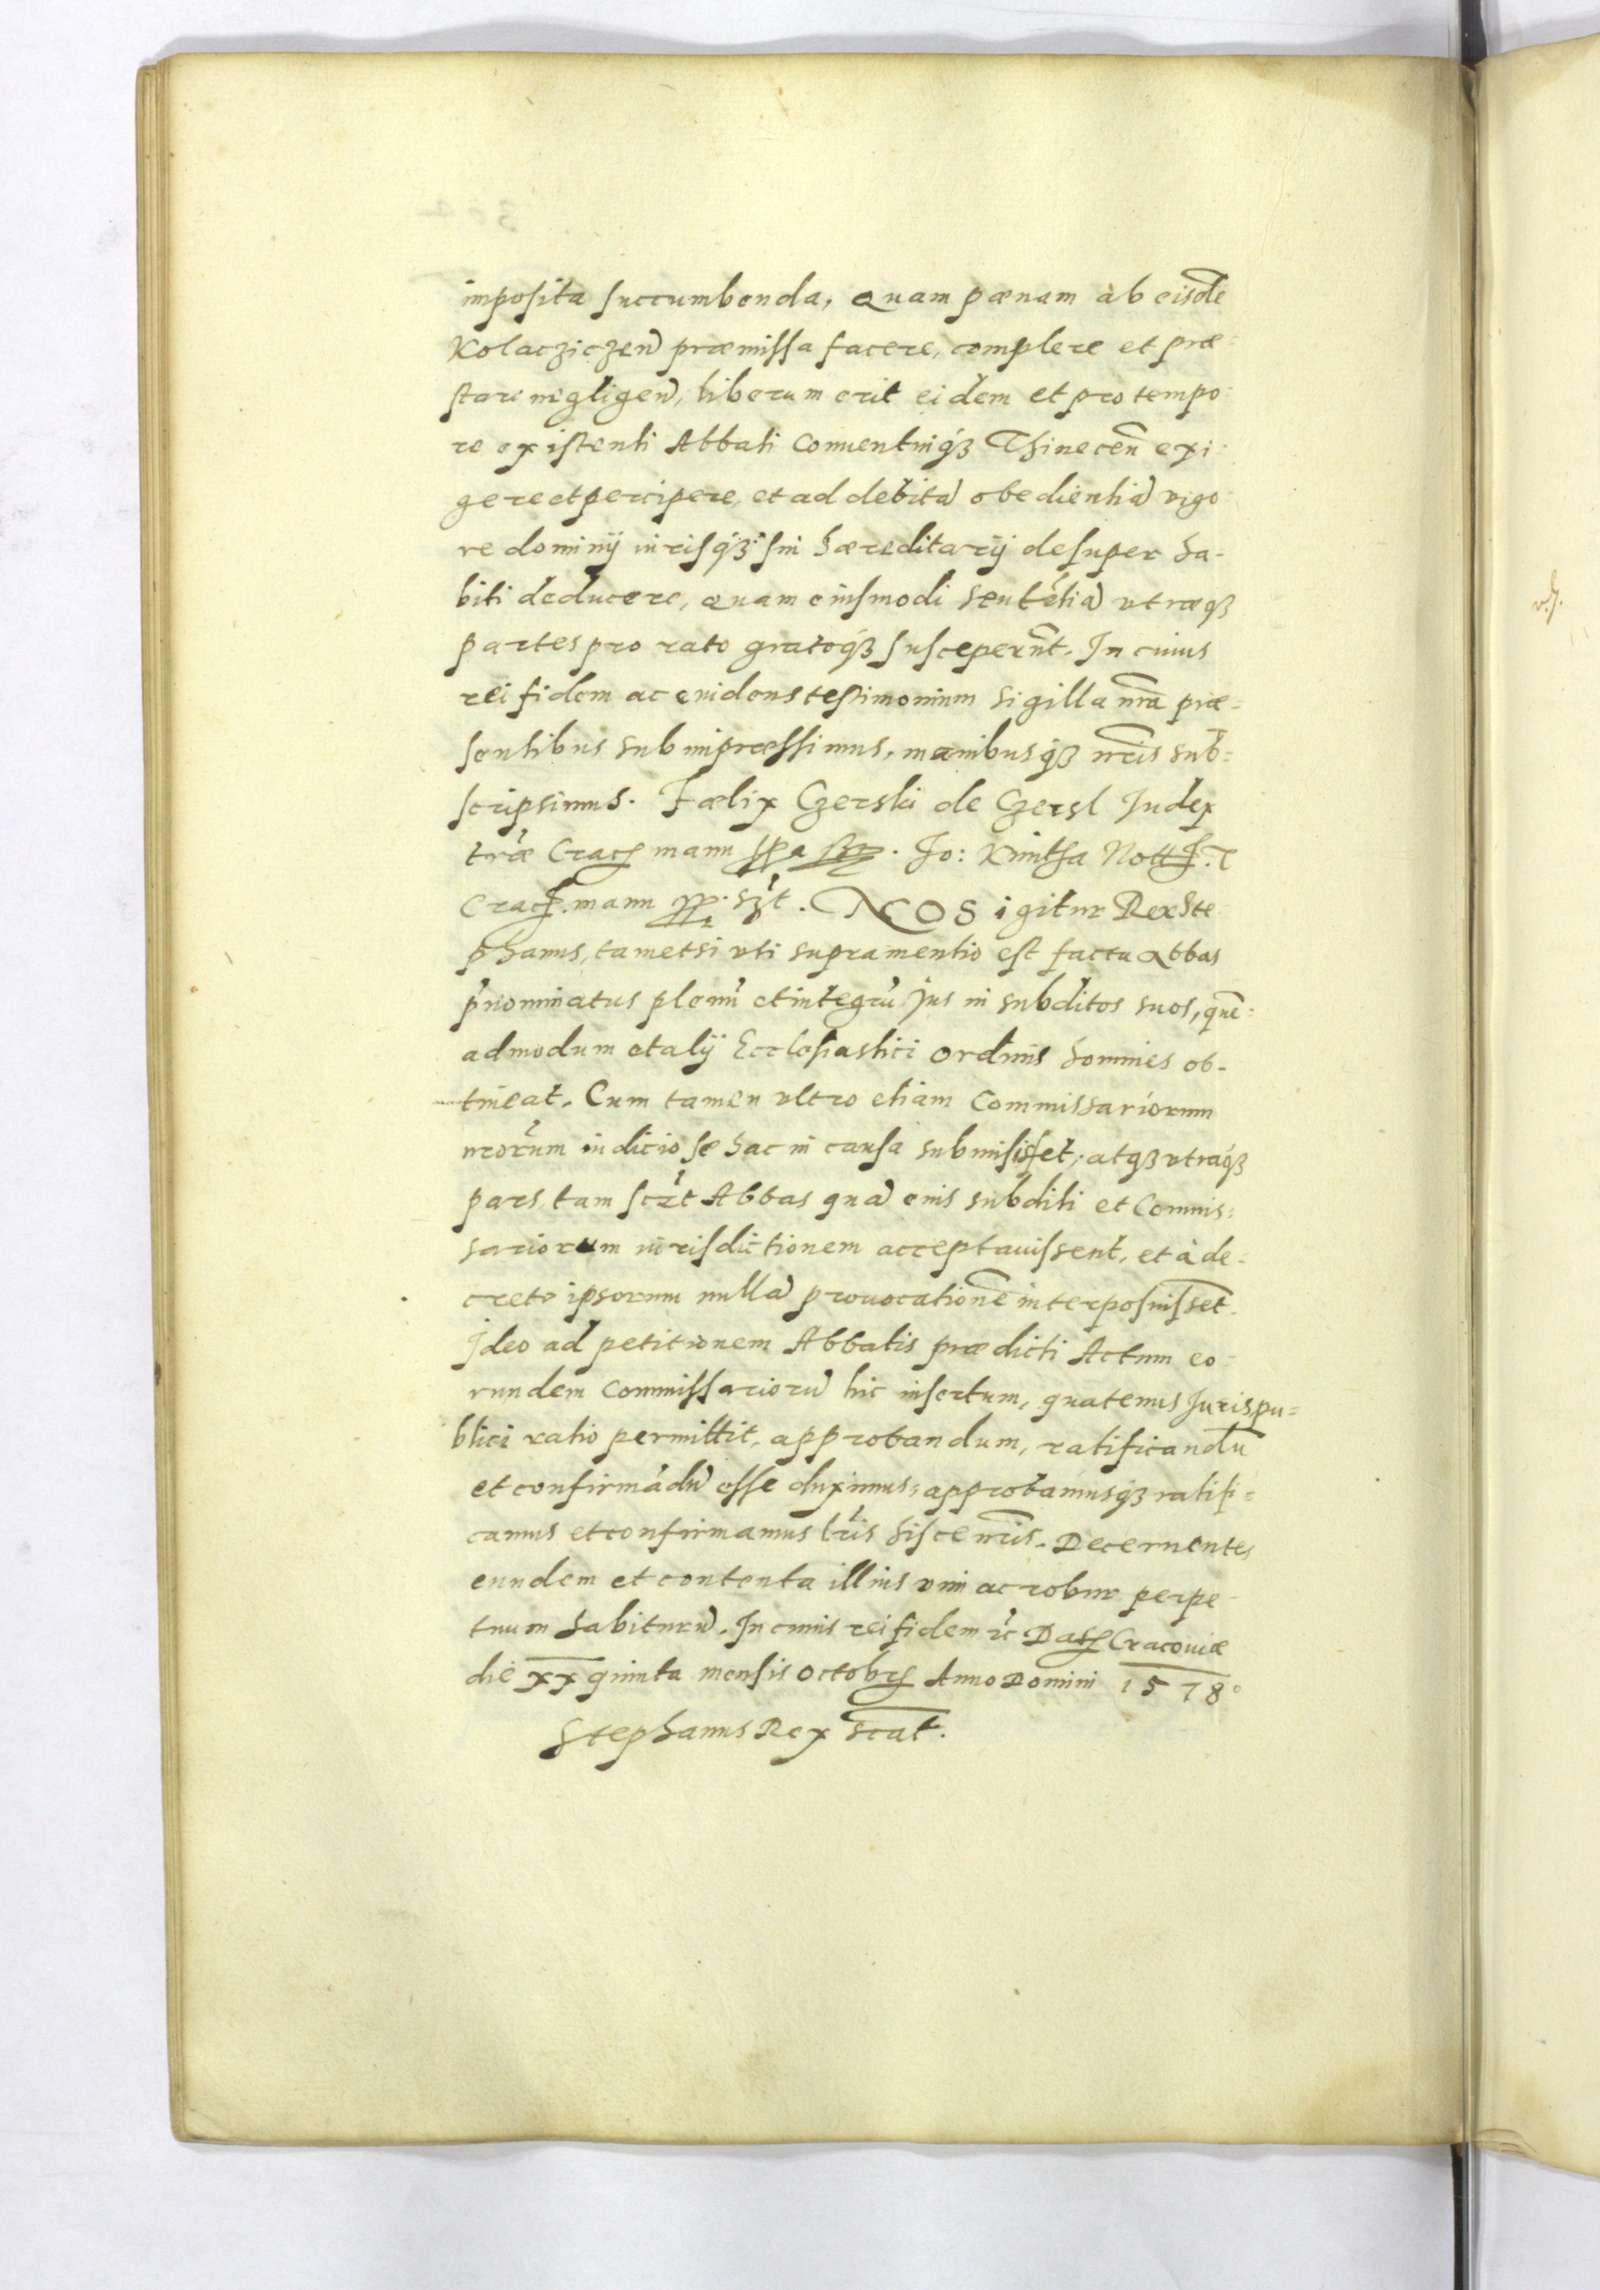 imposita succumbenda, quam pœnam ab eisdē
Kolacziczeñ præmissa facere, complere et præ-
stare negligeñ, liberum erit eidem et pro tempo-
re existenti Abbati Conuentuiq3 Thineceñ exi-
gere et percipere, et ad debitā obedientiā vigo-
re dominij iurisq3 sui hæreditarij desuper ha-
biti deducere, quam eiusmodi sentētiā utræq3
partes pro rato gratoq3 susceperūt. In cuius
rei fidem ac euidens testimonium sigilla nrā præ-
sentibus subimpressimus, manibusq3 nrīs sub-
scripsimus. Fælix Czerski de Czersl Judex
trāe Crac manu . Jo: Kmitha Nott. T
Crac. manu pp. szt. NOS igitur Rex Ste-
phanus, tametsi uti supra mentio est facta Abbas
p̄nominatus plenū et integrū Jus in subditos suos, quē-
admodum et alij Ecclesiastici ordinis homines ob-
tineat. Cum tamen ultro etiam Commissariorum
nrōrum iudicio se hac in causa submisisset, atq3 utraq3
pars, tam sczt Abbas quā eius subditi et Commis-
sariorum iurisdictionem acceptauissent, et à de-
creto ipsorum nullā prouocationē interposuissent.
Jdeo ad petitionem Abbatis prædicti Actum eo-
rundem Commissariorū hic insertum, quatenus Juris pu-
blici ratio permittit, approbandum, ratificandū
et confirmādū esse duximus, approbamusq3 ratifi-
camus et confirmamus lrīs hisce nrīs. Decernentes
eundem et contenta illius vim ac robur perpe-
tuum habiturū. In cuius rei fidem rc̄ Dat Cracouiæ
die xx quinta mensis octobr Anno Domini 1578
Stephanus Rex scāt.